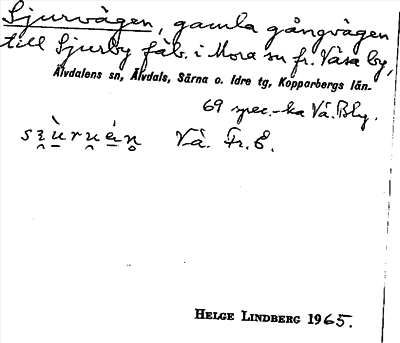 Sjurvägen, gamla gångvägen
till Sjurby fäb. i Mora sn fr. Våsa by,
Älvdalens sn, Älvdals, Särna o. Idre tg, Kopparbergs län.
69 spec.-ka Vå. Bly.
Vå. Fr. E.
HELGE LINDBERG 1965.